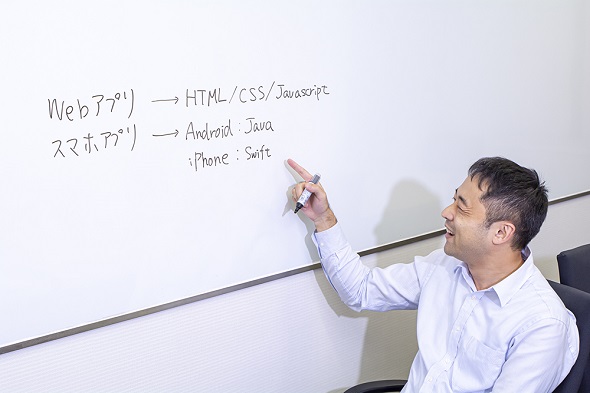 Webアプリ → HTML/CSS/Javascript
スマホアプリ → Android:Java
iPhone:Swift